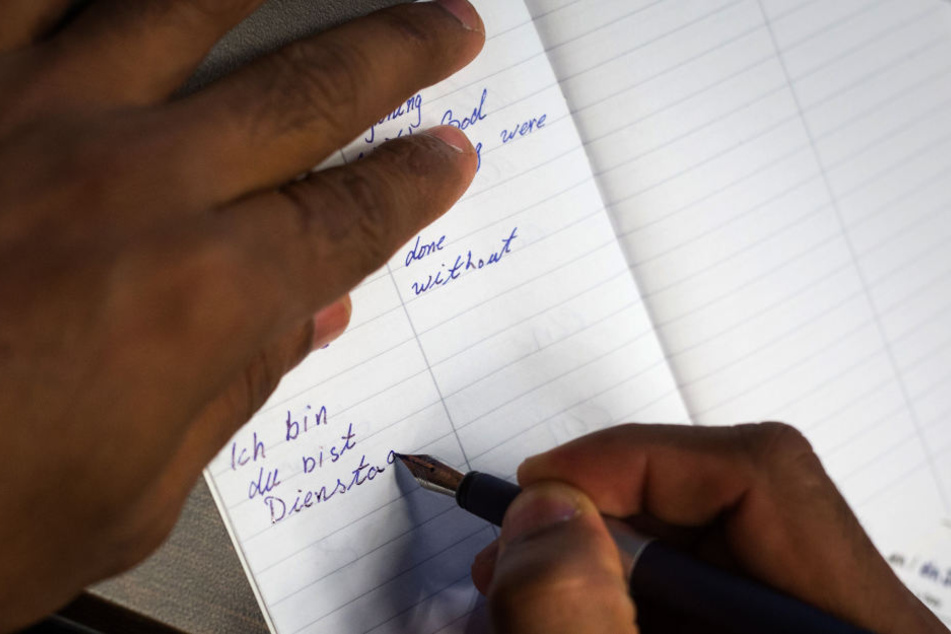 God
were
done
without
Ich bin
du bist
Dienstag